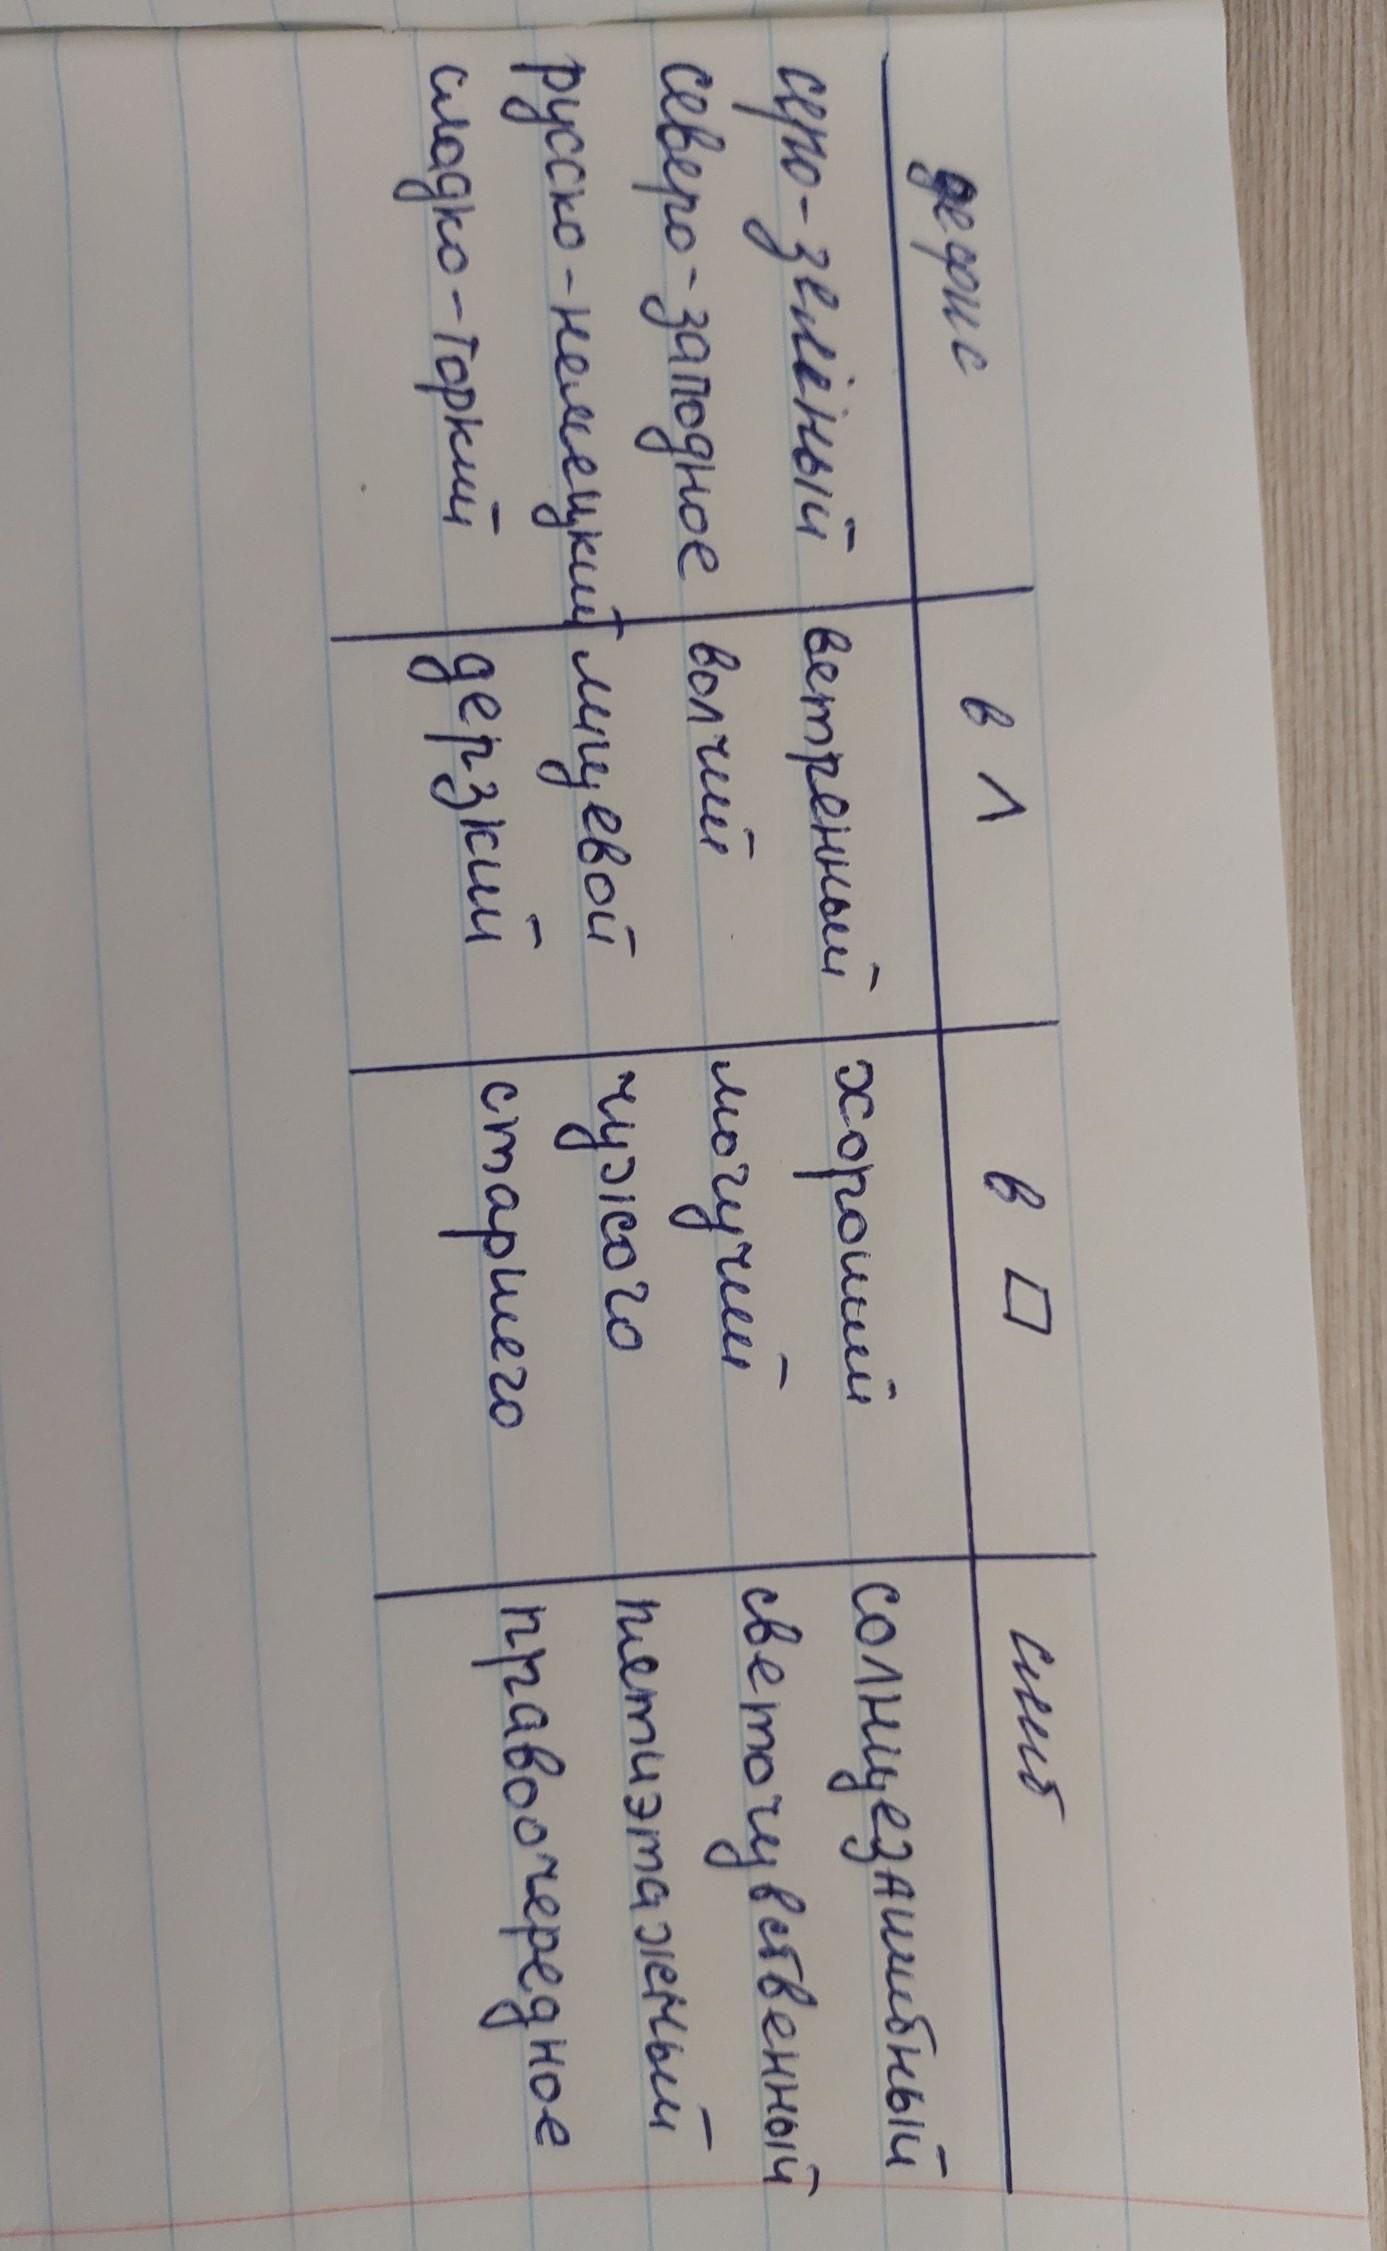 дефис в ^ в □ слит
серо-зелёный ветренный хороший солнцезащитный
северо-заподное волчий могучий светочувственный
русско-немецкий лицевой чужого петиэтажный
сладко-горкий дерзкий старшего правоочередное